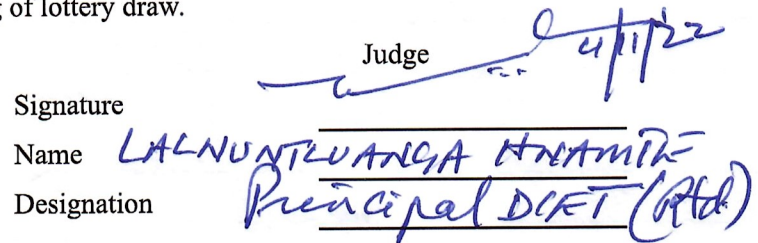 of lottery draw.
Judge 4/11/22
Signature
Name LALNUNTLUANGA HNAMTE
Designation Principal DIET (Rtd)